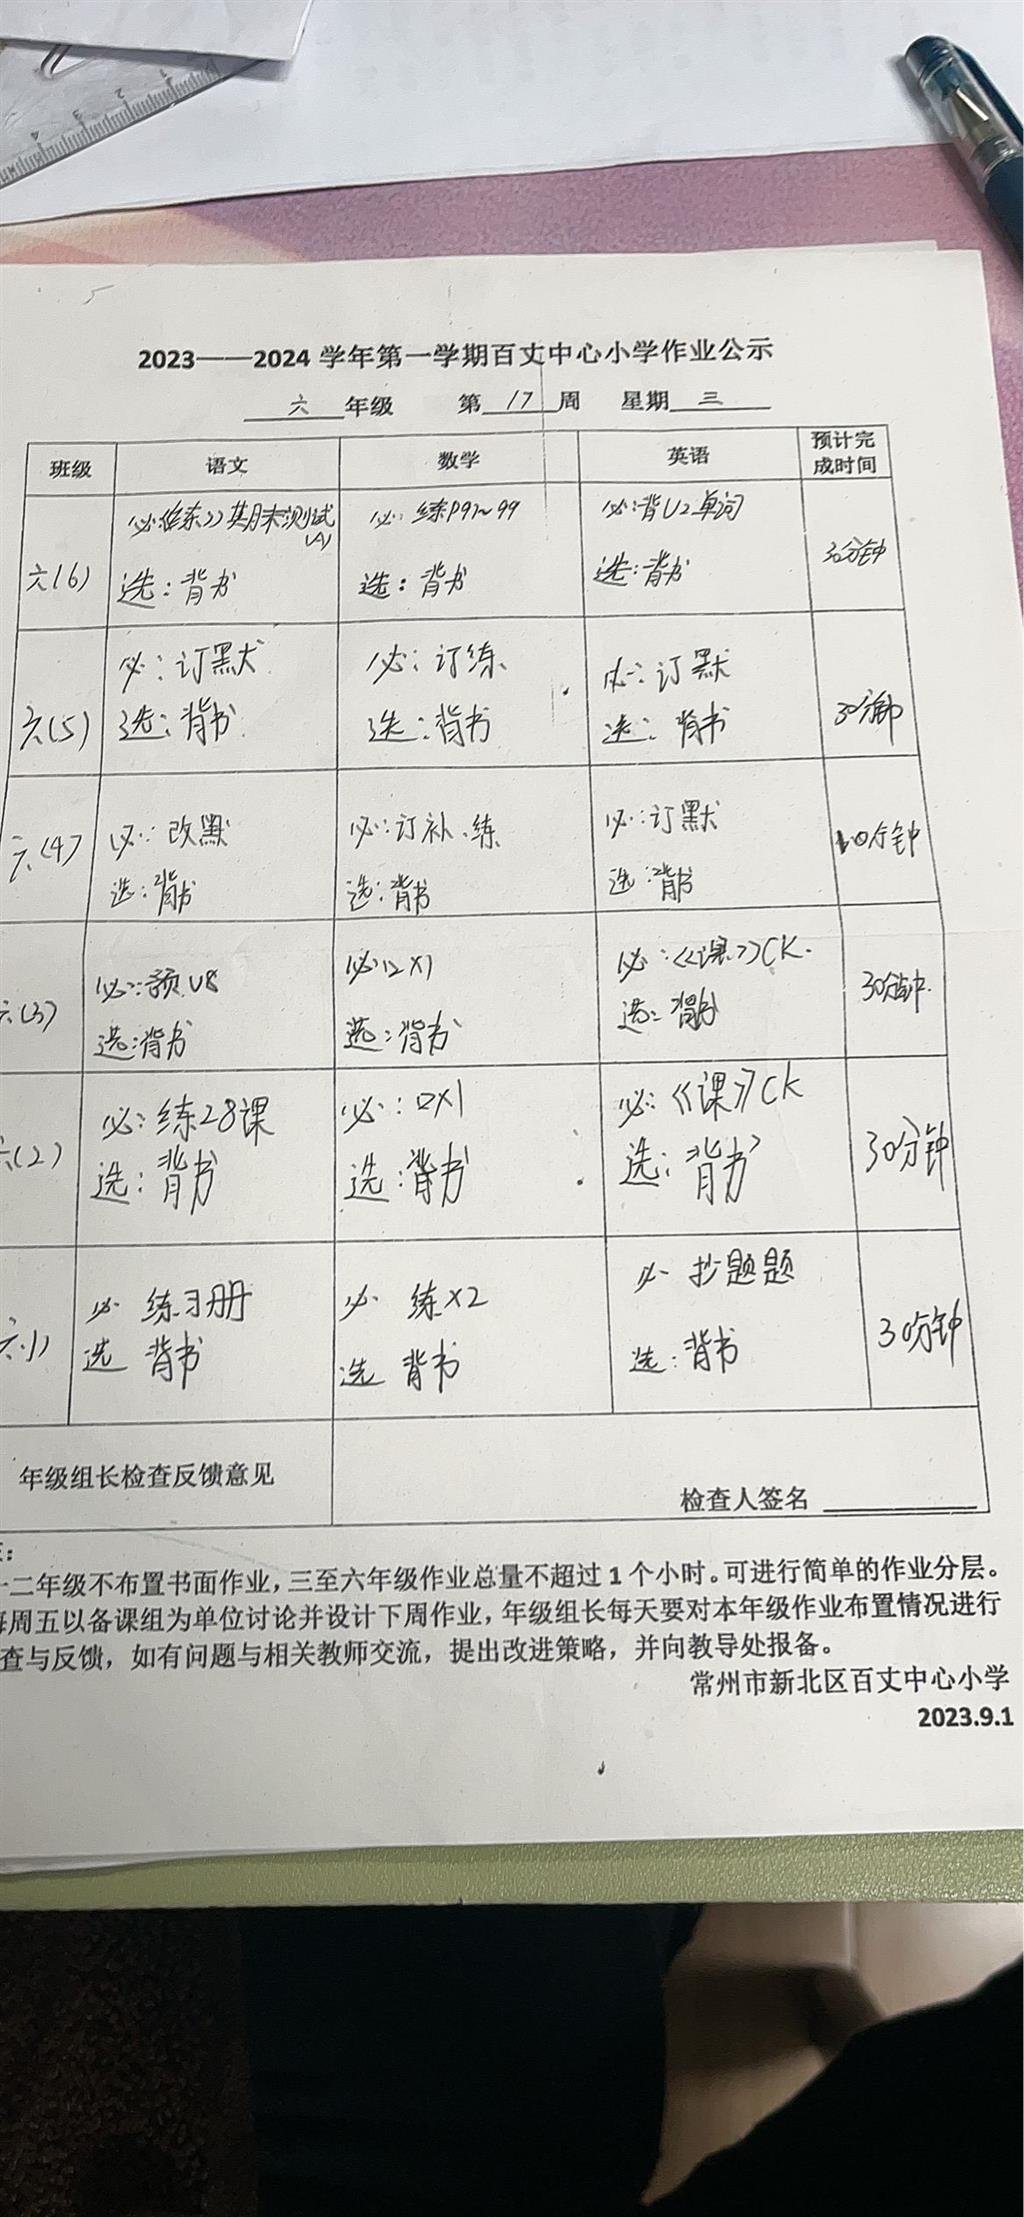 2023——2024 学年第一学期百丈中心小学作业公示
六 年级 第 17 周 星期 三
班级 语文 数学 英语 预计完成时间
六(6)
必《练》期末测试(A)
选:背书
必:练P97~99
选:背书
必:背U2单词
选:背书
30分钟
六(5)
必:订默
选:背书
必:订练
选:背书
必:订默
选:背书
30分钟
六(4)
必:改默
选:背书
必:订补、练
选:背书
必:订默
选:背书
0分钟
六(3)
必:预U8
选:背书
必 X1
选:背书
必:《课》CK.
选:背书
30分钟.
六(2)
必:练28课
选:背书
必:口X1
选:背书
必:《课》CK
选:背书
30分钟
六(1)
必 练习册
选 背书
必 练X2
选 背书
必 抄题题
选:背书
30分钟
年级组长检查反馈意见
检查人签名
二年级不布置书面作业,三至六年级作业总量不超过1个小时。可进行简单的作业分层。
每周五以备课组为单位讨论并设计下周作业,年级组长每天要对本年级作业布置情况进行
查与反馈,如有问题与相关教师交流,提出改进策略,并向教导处报备。
常州市新北区百丈中心小学
2023.9.1